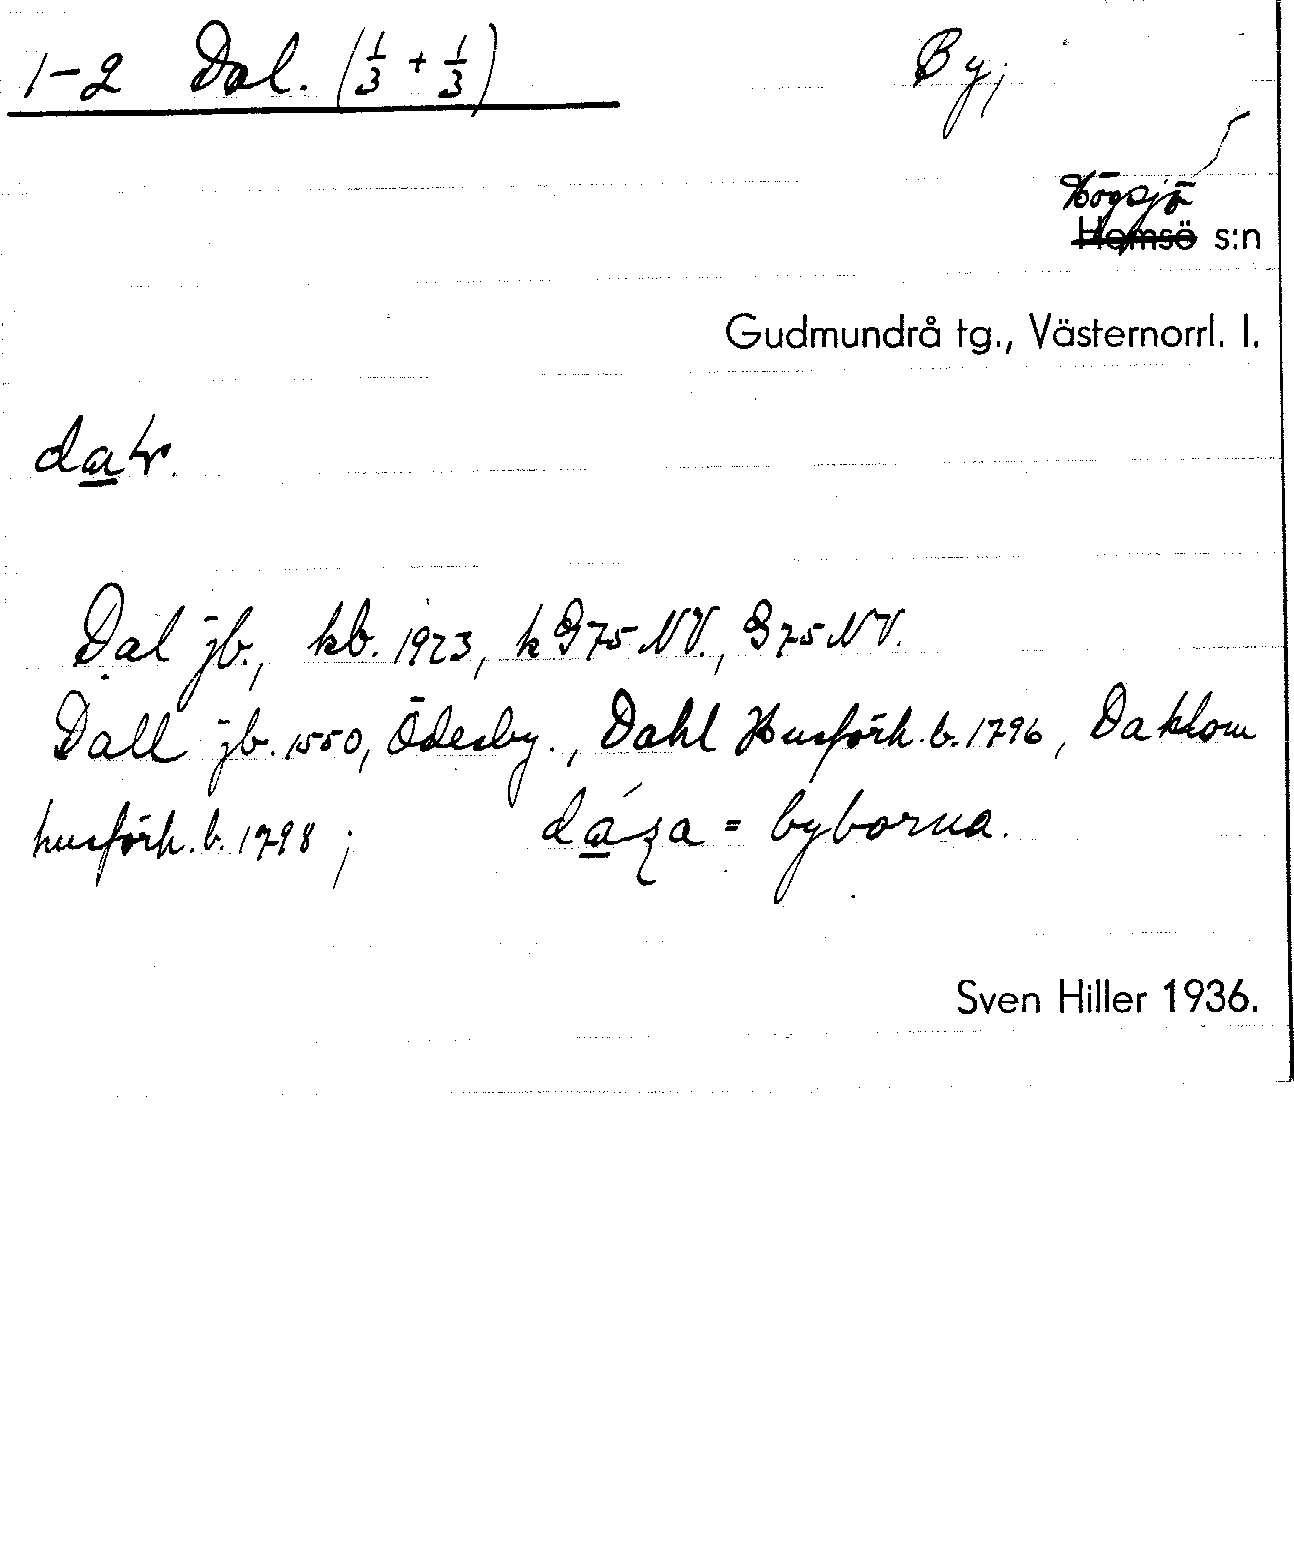 1-2 Dal. (1/3 + 1/3) By;
Högsjö
Hemsö s:n
Gudmundrå tg., Västernorrl. l.
Dal jb., kb. 1923, k G75 NV., G75 NV.
Dall jb. 1550, Ödesby., Dahl Husförh. b. 1796, Dahlom
husförh. b. 1798; = byborna.
Sven Hiller 1936.